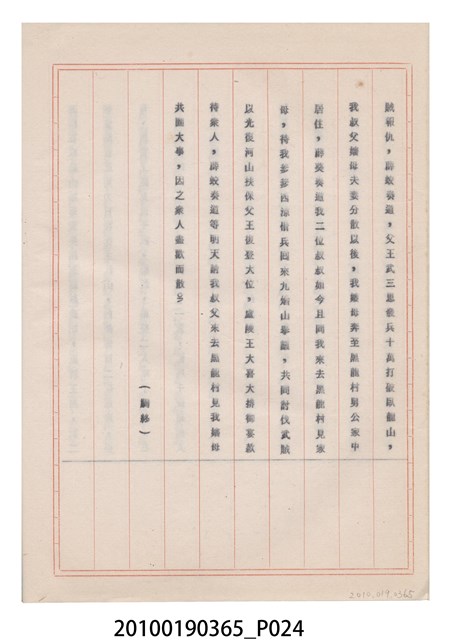 賊報仇，薛蛟奏道，父王武三思發兵十萬打破臥龍山，
我叔父嬸母夫妻分散以後，我嬸母奔至黑龍村男公家中
居住，薛葵奏道我二位叔叔如今且同我來去黑龍村見家
母，待我爹爹西涼借兵回來九焰山舉義，共同討伐武賊
以光復河山扶保父王復登大位，廬陵王大喜大排御宴款
待眾人，薛蛟奏道等明天請我叔父來去黑龍村見我嬸母
共圖大事，因之眾人盡歡而散。
（劇終）
2010.019.0365
20100190365_P024